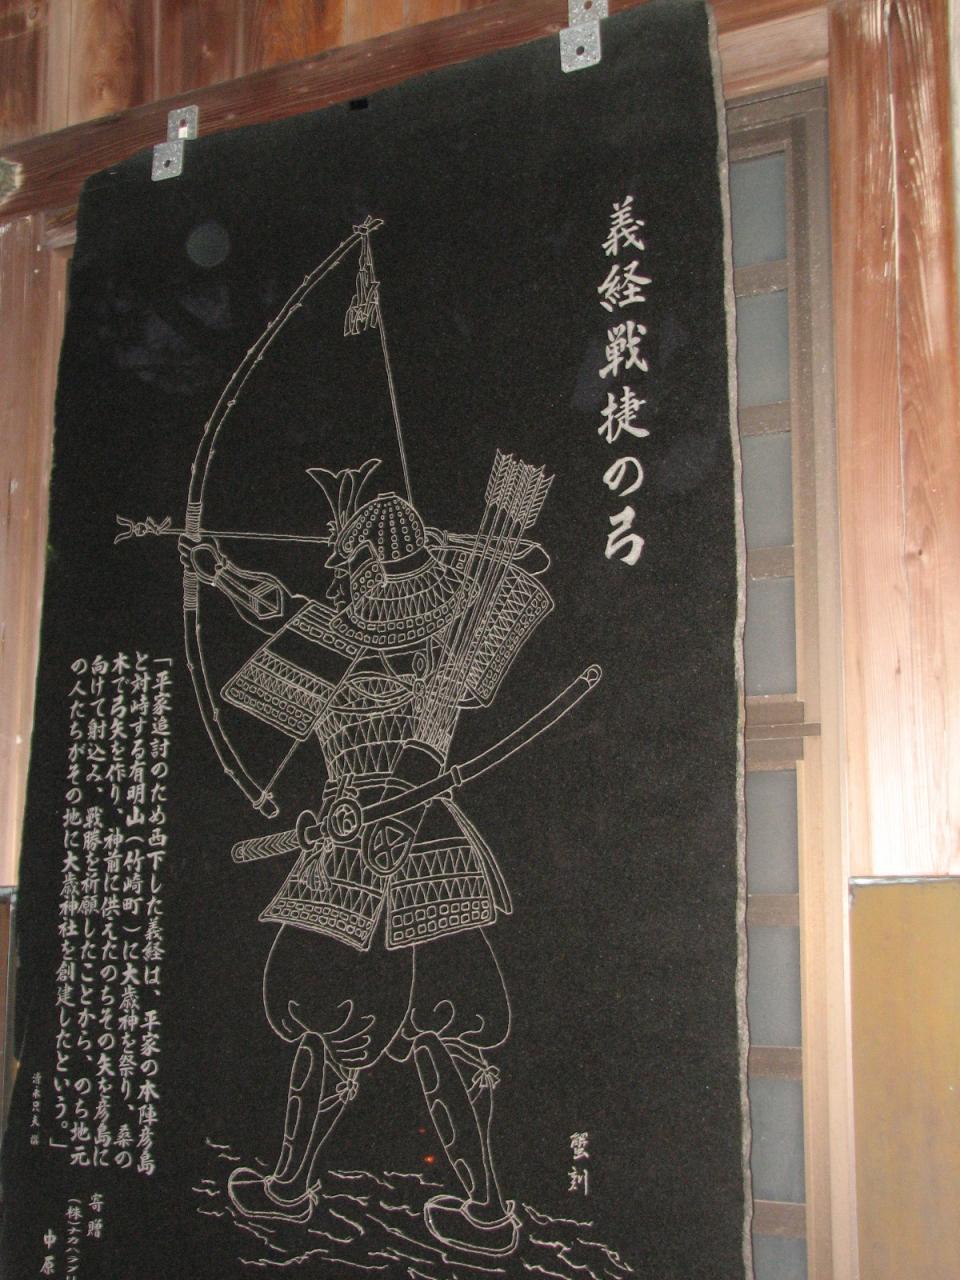 義経戦捷の弓
「平家追討のため西下した義経は、平家の本陣彦島
と対峙する有明山(竹崎町)に大歳神を祭り、桑の
木で弓矢を作り、神前に供えたのちその矢を彦島に
向けて射込み、戦勝を祈願したことから、のち地元
の人たちがその地に大歳神社を創建したという。」
蟹刻
寄贈
中原